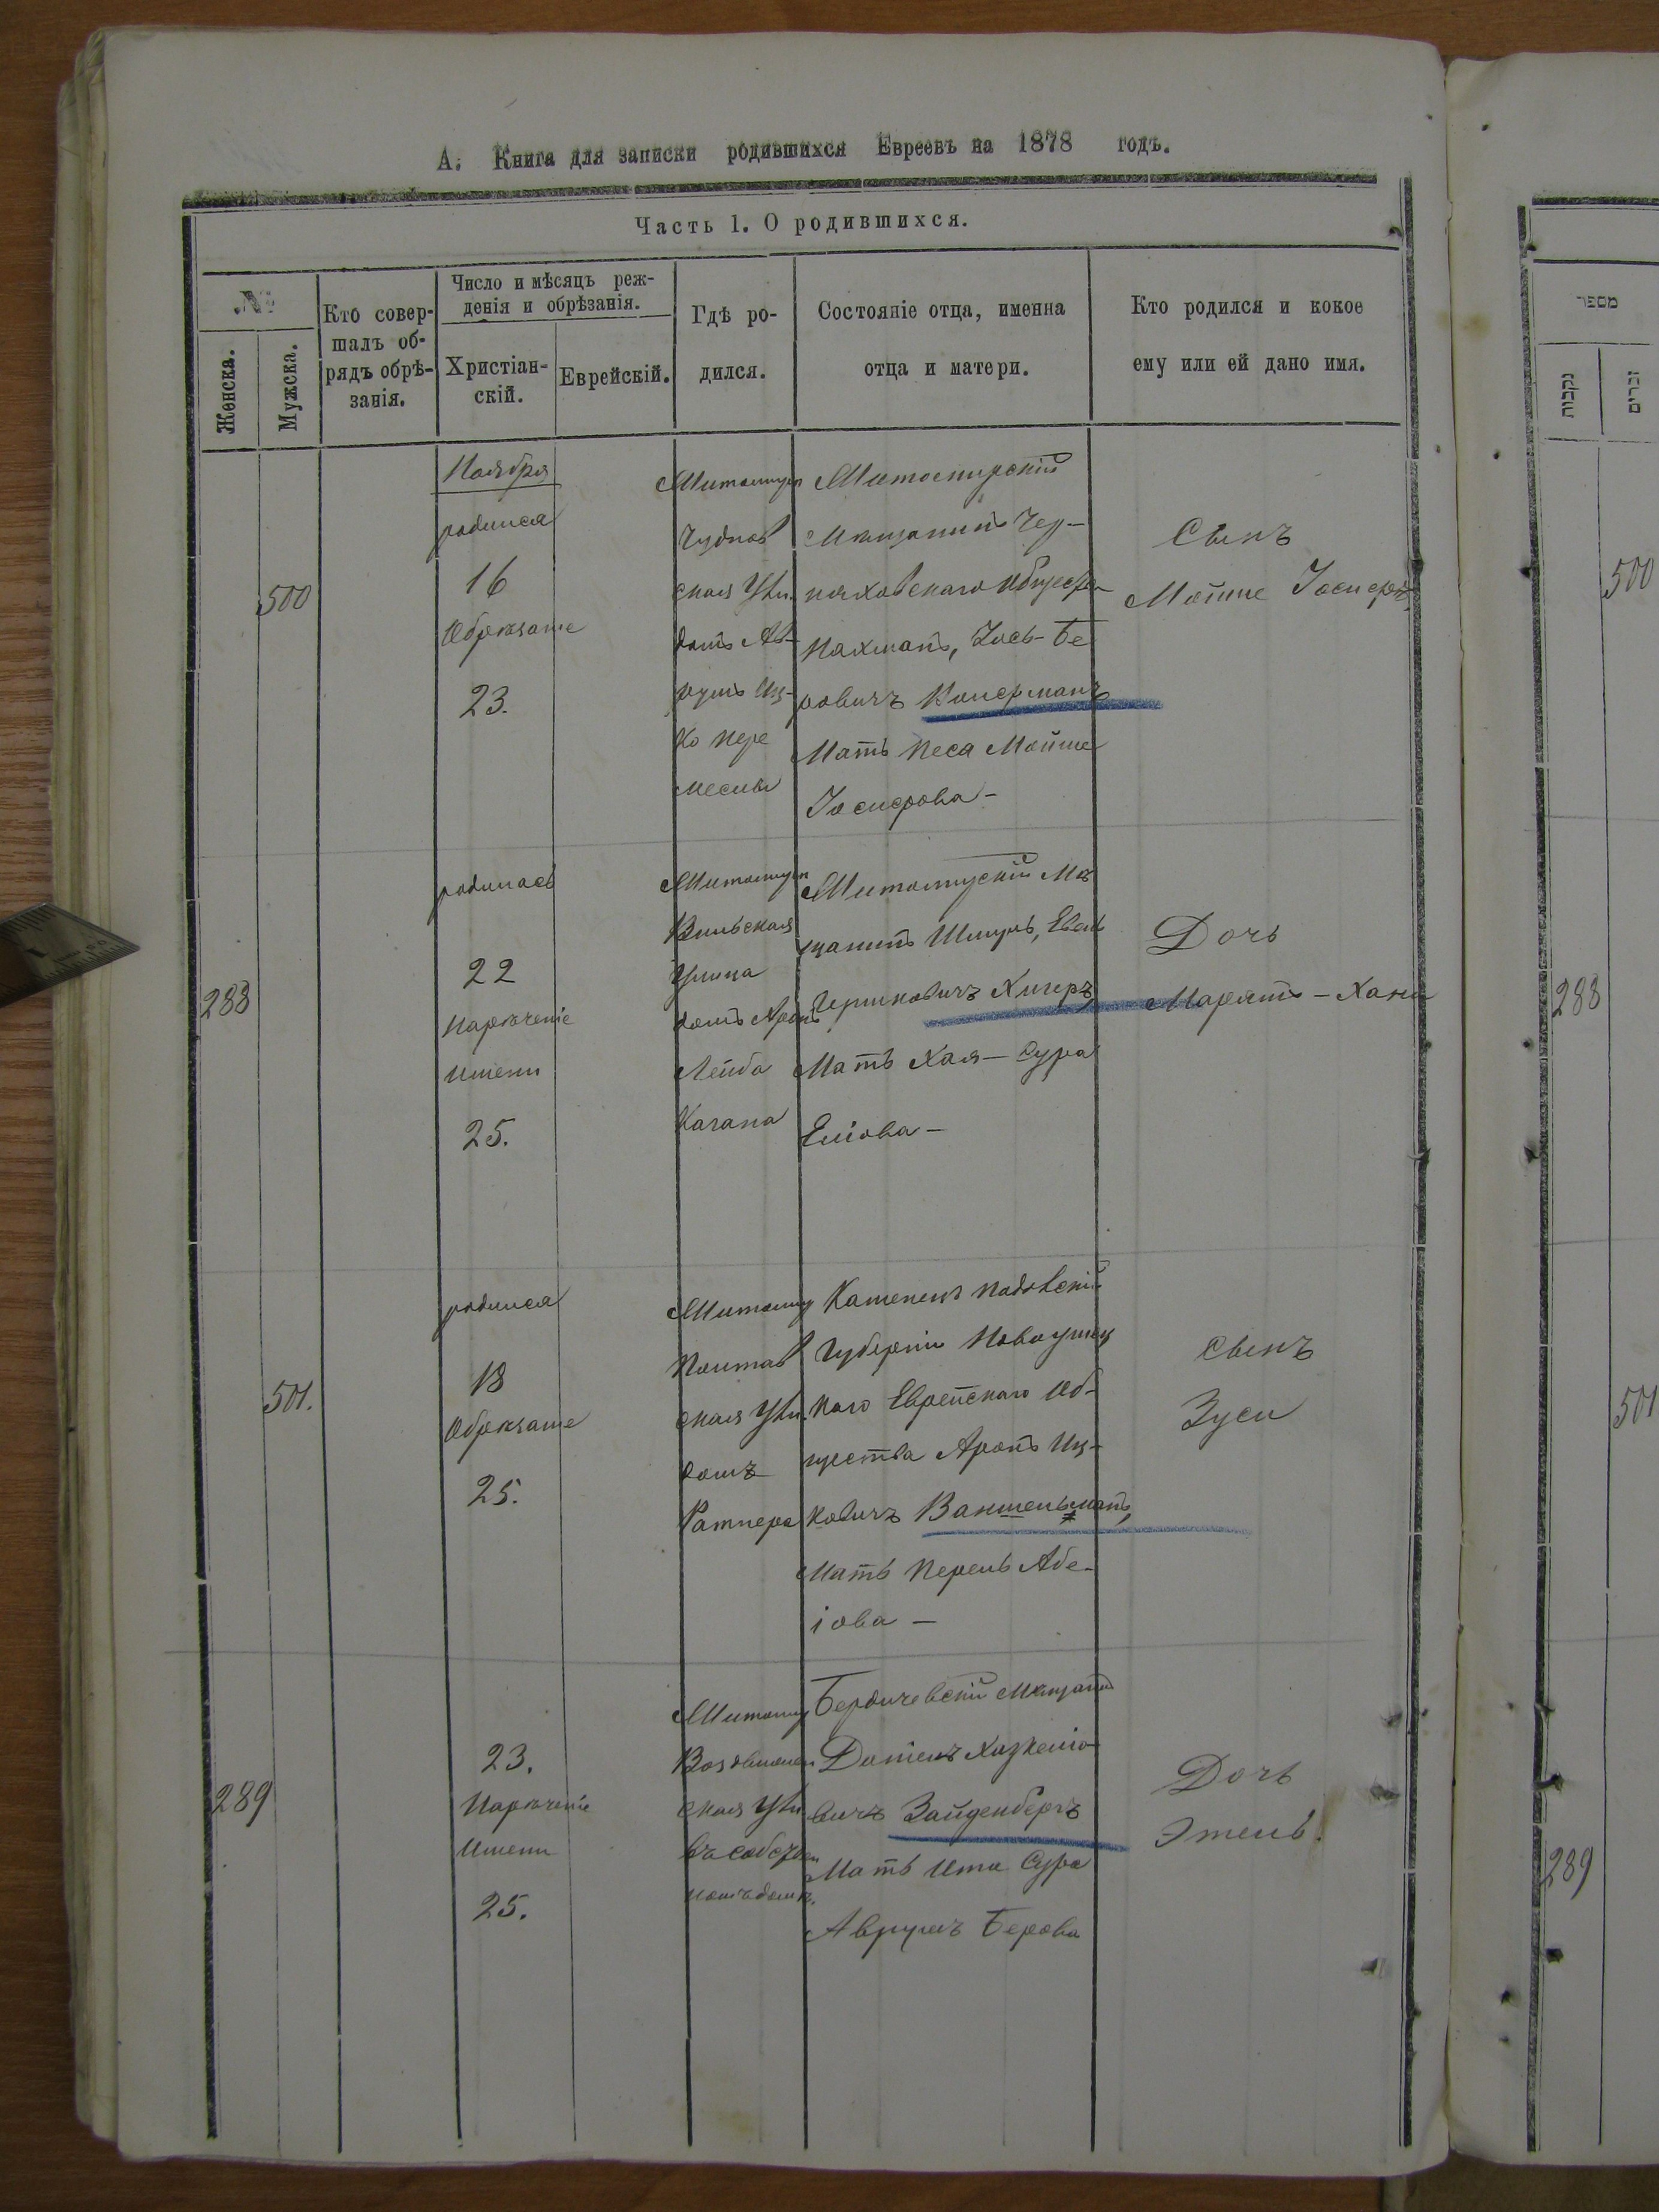 А. Книга для записки родившихся Евреевъ на 1878 годъ.
Часть 1. О родившихся.
№
Женска.
Мужска.
Кто совер-
шалъ об-
рядъ обрѣ-
занія.
Число и мѣсяцъ реж-
денія и обрѣзанія.
Христіан-
скій.
Еврейскій.
Гдѣ ро-
дился.
Состояніе отца, именна
отца и матери.
Кто родился и кокое
ему или ей дано имя.
500
Ноября
родился
16
Обрѣзаніе
23.
Житомир
Чуднов
ская Ули.
домъ Ав-
румъ Иц-
ко Пере
Житомирскій
Мѣщанинъ Чер-
няховскаго Общества
Нахманъ, Іось-Бе
ровичъ
Мать Песа Мойше
Іосифова-
Сынъ
Мойше Іосифъ
288
родилась
22
Нарѣченіе
Имени
25.
Житомир
Вильская
Улица
домъ Аронъ
Лейба
Кагана
Житомирскій Мѣ
щанинъ Шмуль, Евель
Гершковичъ Хигеръ,
Мать Хая-Сура
Еліова-
Дочь
Марьямъ-Хана
501.
родился
18
Обрѣзаніе
25.
Житомир
Полтав
ская Ули.
домъ
Ратнера
Каменецъ Подольскій
Губерніи Новоушиц
каго Еврейскаго Об-
щества Аронъ Иц-
ковичъ Ваншельманъ,
Мать Перель Абе-
іова-
Сынъ
Зуси
289
23.
Нарѣченіе
Имени
25.
Житомир
Воздвижен
ская Ули
въ собствен
номъ домѣ.
Бердичевскій Мѣщанинъ
Даніелъ Хаскеліо-
вичъ Зайденбергъ
Мать Ита Сура
Аврумъ Берова
Дочь
Этель.
מספר
נקבות
זכרים
500
288
501
289